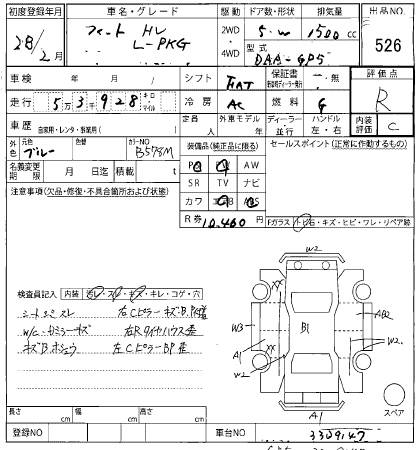 初度登録年月 車名・グレード 駆動 ドア数・形状 排気量 出品NO.
28/2月 フィット HV L-PKG 2WD 4WD 5.W 1500cc 526
型式 DAA-GP5
車検 年 月 シフト FAT 保証書 有・無 評価点 R
走行 5万3千928 キロ・マイル 冷房 AC 燃料 G
車歴 自家用・レンタ・事業用( ) 定員 外車モデル 年 ディーラー・並行 ハンドル 左・右 内装評価 C
外色 元色 ブルー 色替 カラーNO B578M
装備品(純正品に限る) セールスポイント(正常に作動するもの)
名義変更期限 月 日迄 積載 t
PS PW AW
SR TV ナビ
カワ エアB ABS
R券 10,460
注意事項(欠品・修復・不具合箇所および状態)
Fガラス トビ石・キズ・ヒビ・ワレ・リペア跡
検査員記入 内装 汚レ・スレ・キズ・キレ・コゲ・穴
シートシミスレ 右Cピラーキズ B.P歪
W/C・ガラミラーキズ 右Rタイヤハウス歪
キズBホシュウ 左CピラーBP歪
W2
W3 B1 AB2
XX XX
A1 W2
W2
A1
スペア
長さ cm 幅 cm 高さ cm
登録NO 車台NO 3309147